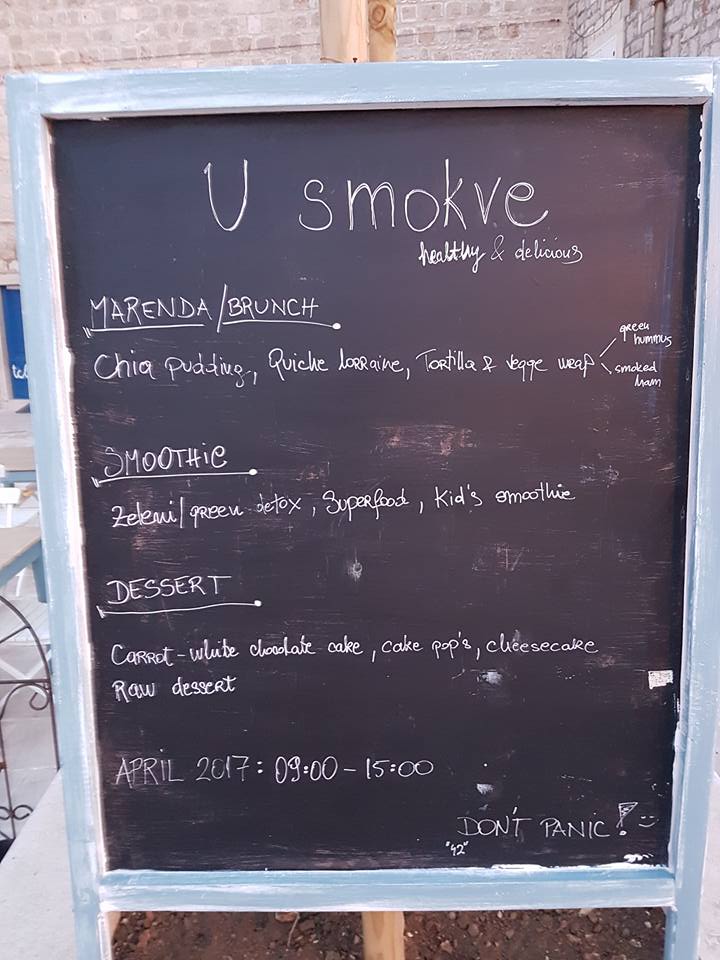 U smokve
healthy & delicious
MARENDA/BRUNCH
Chia pudding, Quiche lorraine, Tortilla & vegge wrap
green
hummus
smoked
ham
SMOOTHIE
Zeleni/green detox, Superfood, Kid's smoothie
DESSERT
Carrot-white chocolate cake, cake pop's, cheesecake
Raw dessert
APRIL 2017: 09:00-15:00
DON'T PANIC! :)
"42"